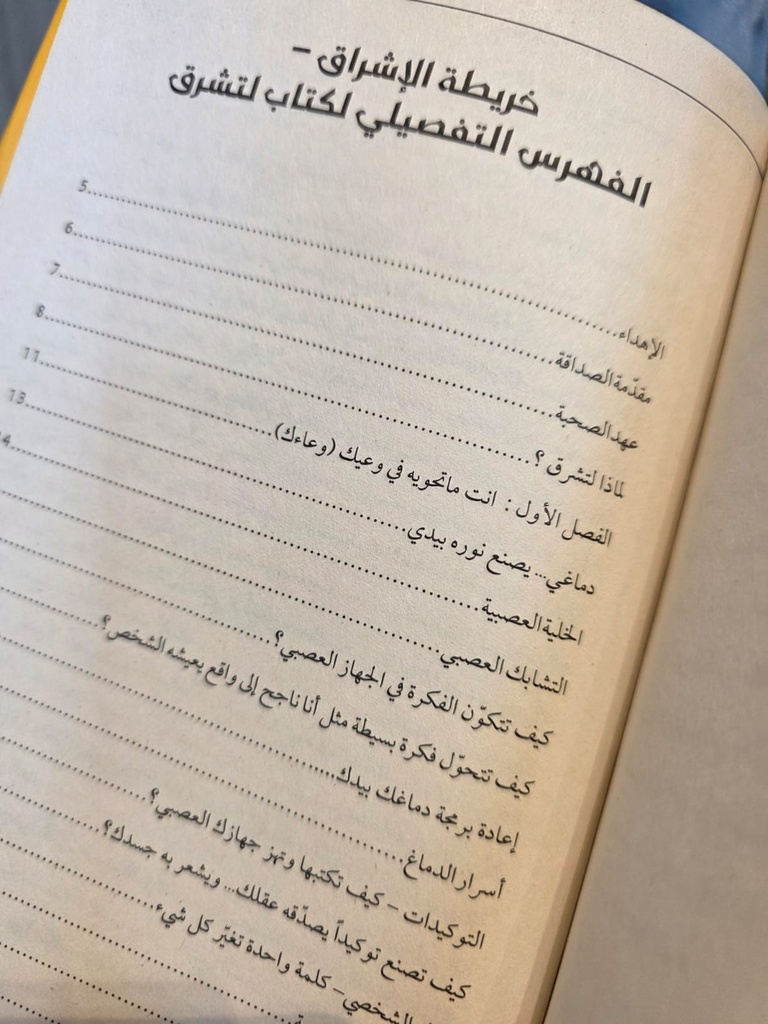 خريطة الإشراق –
الفهرس التفصيلي لكتاب لتشرق
الإهداء.....5
مقدّمة الصداقة.....6
عهد الصحبة.....7
لماذا لتشرق ؟.....8
الفصل الأول : انت ماتحويه في وعيك (وعاءك).....11
دماغي... يصنع نوره بيدي.....13
الخلية العصبية.....14
التشابك العصبي.....
كيف تتكوّن الفكرة في الجهاز العصبي؟.....
كيف تتحوّل فكرة بسيطة مثل أنا ناجح إلى واقع يعيشه الشخص؟.....
إعادة برمجة دماغك بيدك.....
أسرار الدماغ.....
التوكيدات – كيف تكتبها وتهز جهازك العصبي؟.....
كيف تصنع توكيداً يصدّقه عقلك... ويشعر به جسدك؟.....
الشخصي– كلمة واحدة تغيّر كل شيء.....